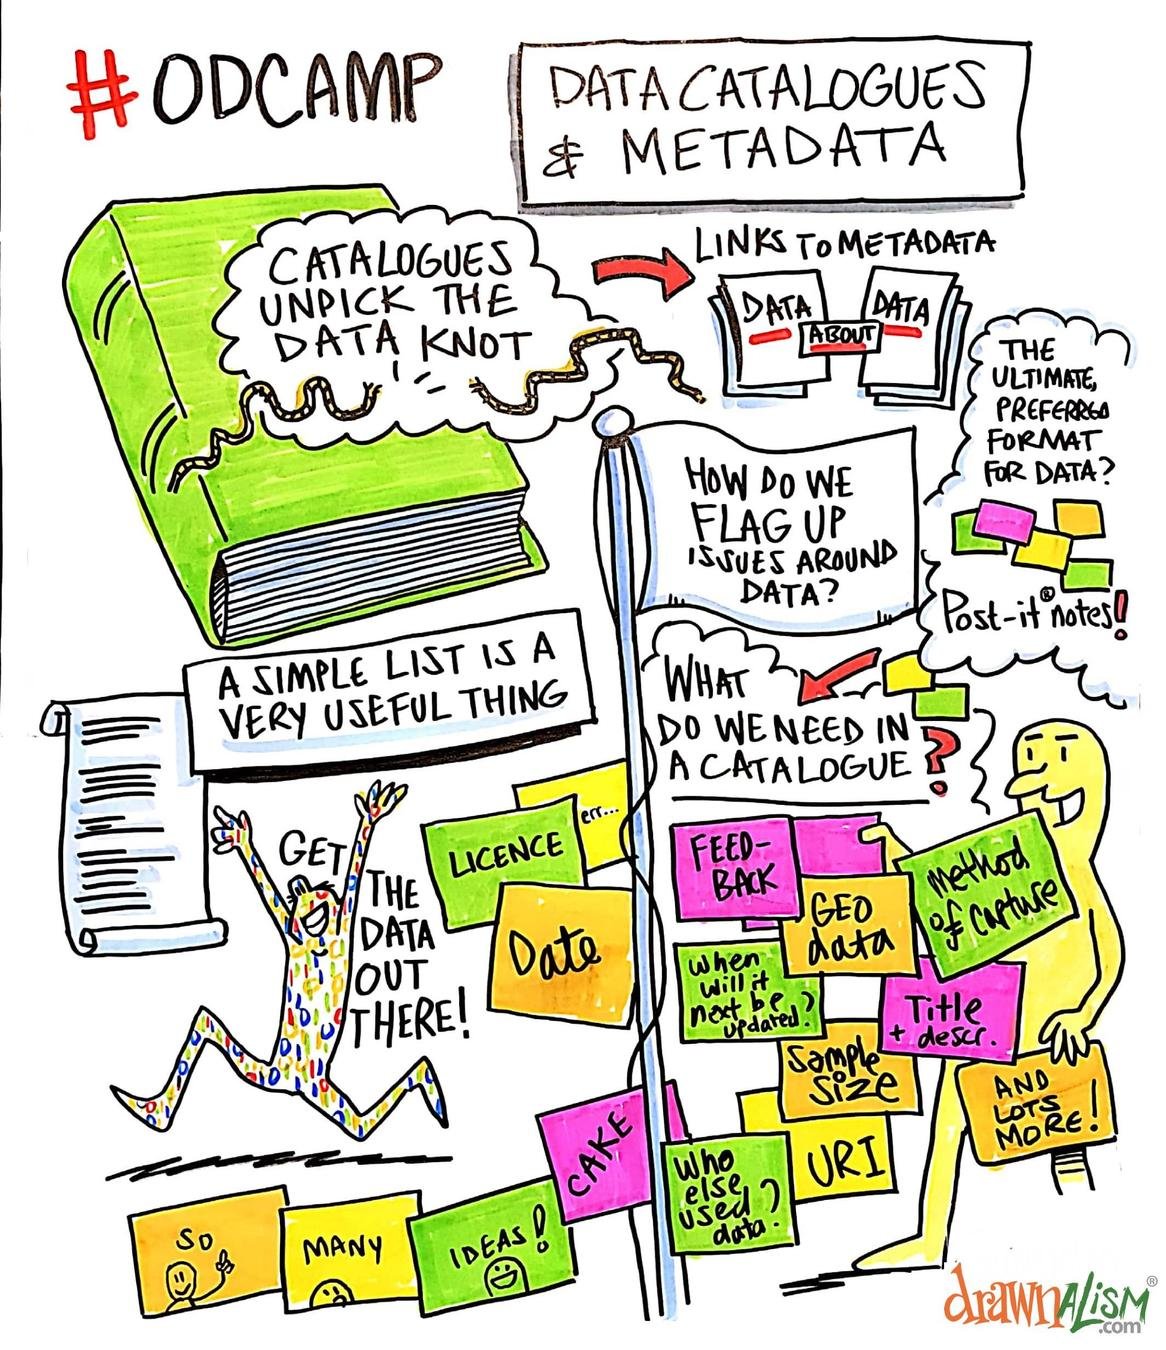 #ODCAMP
DATA CATALOGUES
& METADATA
CATALOGUES
UNPICK THE
DATA KNOT
LINKS TO METADATA
DATA
ABOUT
DATA
THE
ULTIMATE,
PREFERRED
FORMAT
FOR DATA?
Post-it® notes!
HOW DO WE
FLAG UP
ISSUES AROUND
DATA?
A SIMPLE LIST IS A
VERY USEFUL THING
WHAT
DO WE NEED IN
A CATALOGUE?
GET
THE
DATA
OUT
THERE!
err...
LICENCE
Date
FEED-
BACK
GEO
data
Method
of capture
when
will it
next be
updated?
Title
+ descr.
Sample
Size
AND
LOTS
MORE!
CAKE
WHO
else
used
data?
URI
SO
MANY
IDEAS!
drawnalism®
.com